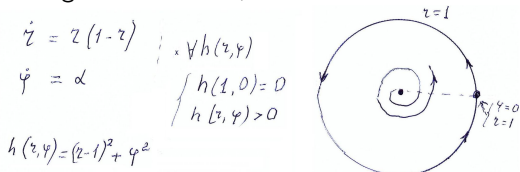 ṙ = r(1-r) ; × ∀h(r,φ)
φ̇ = α { h(1,0)=0
h(r,φ)>0
h(r,φ)=(r-1)²+φ²
r=1
φ=0
r=1